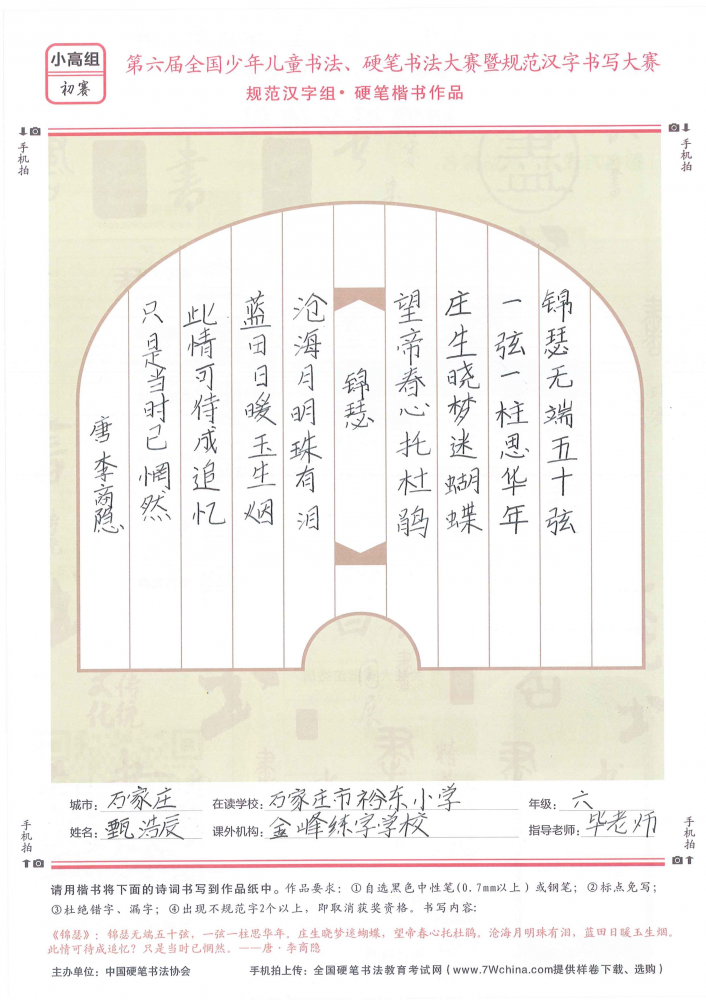 小高组
初赛
第六届全国少年儿童书法、硬笔书法大赛暨规范汉字书写大赛
规范汉字组·硬笔楷书作品
手机拍
手机拍
锦瑟无端五十弦
一弦一柱思华年
庄生晓梦迷蝴蝶
望帝春心托杜鹃
锦瑟
沧海月明珠有泪
蓝田日暖玉生烟
此情可待成追忆
只是当时已惘然
唐 李商隐
城市：石家庄 在读学校：石家庄市裕东小学 年级：六
姓名：甄浩辰 课外机构：金峰练字学校 指导老师：毕老师
手机拍
手机拍
请用楷书将下面的诗词书写到作品纸中。作品要求：①自选黑色中性笔(0.7mm以上)或钢笔；②标点免写；
③杜绝错字、漏字；④出现不规范字2个以上，即取消获奖资格。书写内容：
《锦瑟》：锦瑟无端五十弦，一弦一柱思华年。庄生晓梦迷蝴蝶，望帝春心托杜鹃。沧海月明珠有泪，蓝田日暖玉生烟。
此情可待成追忆？只是当时已惘然。——唐·李商隐
主办单位：中国硬笔书法协会 手机拍上传：全国硬笔书法教育考试网（www.7Wchina.com提供样卷下载、选购）